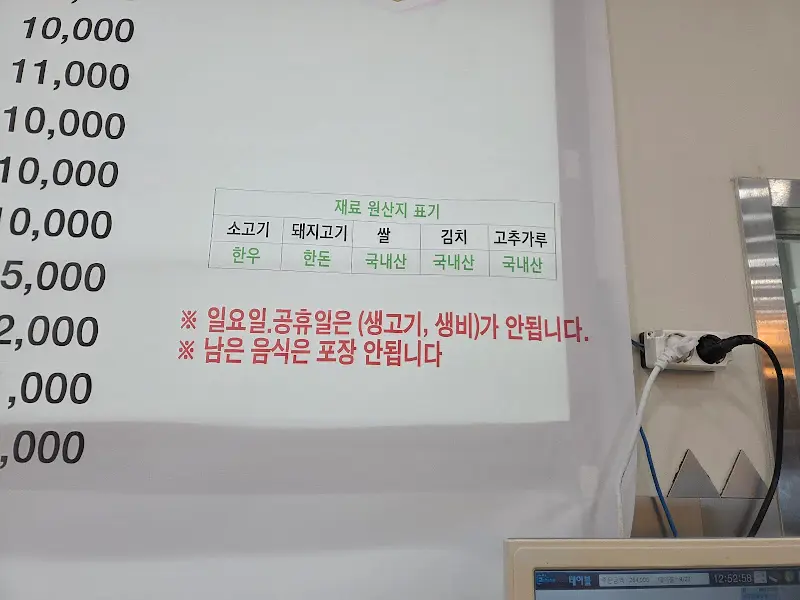 10,000
11,000
10,000
10,000
0,000
5,000
2,000
,000
,000
재료 원산지 표기
소고기 돼지고기 쌀 김치 고추가루
한우 한돈 국내산 국내산 국내산
※ 일요일.공휴일은 (생고기, 생비)가 안됩니다.
※ 남은 음식은 포장 안됩니다
테이블
12:52:58